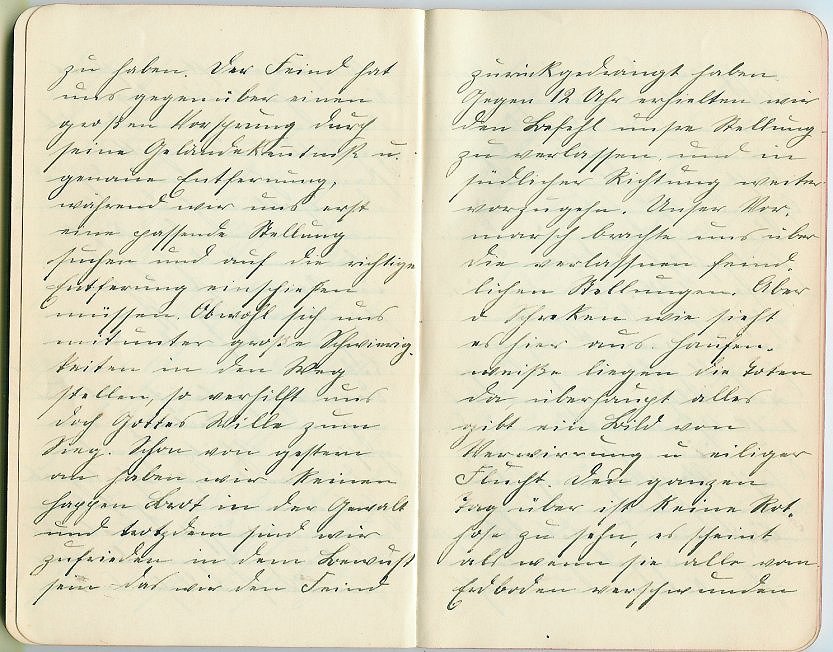 zu haben. Der Feind hat
uns gegenüber einen
großen Vorsprung durch
seine Geländekenntniß u.
genaue Entfernung,
während wir uns erst
eine passende Stellung
suchen und auf die richtige
Entferung einschießen
müssen. Obwohl sich uns
mitunter große Schwierig-
keiten in den Weg
stellen, so verhilft uns
doch Gottes Wille zum
Sieg. Schon von gestern
an haben wir keinen
happen Brot in der Gewalt
und trotzdem sind wir
zufrieden in dem Bewußt
sein das wir den Feind
zurückgedrängt haben.
Gegen 12 Uhr erhielten wir
den Befehl unsre Stellung
zu verlassen und in
südlicher Richtung weiter
vorzugehn. Unser Vor-
marsch brachte uns über
die verlassnen feind-
lichen Stellungen. Aber
o schreken wie sieht
es hier aus. Haufen-
weiße liegen die Toten
da, überhaupt alles
gibt ein Bild von
Verwirrung u eiliger
Flucht. Den ganzen
Tag über ist keine Rot-
hose zu sehn, es scheint
als wenn sie alle vom
Erdboden verschwunden